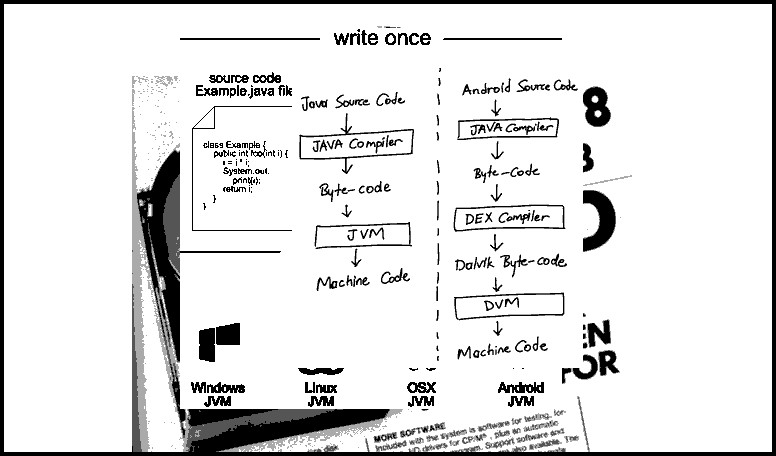 write once
source code
Example.java file
class Example {
public int foo(int i) {
i = i * i;
System.out.
print(i);
return i;
}
}
Java Source Code
JAVA Compiler
Byte-code
JVM
Machine Code
Android Source Code
JAVA Compiler
Byte-Code
DEX Compiler
Dalvik Byte-code
DVM
Machine Code
Windows
JVM
Linux
JVM
OSX
JVM
Android
JVM
8
EN
FOR
MORE SOFTWARE
Included with the system is software for testing, for-
I/O drivers for CP/M®, plus an automatic
program. Support software and
are also available. The
disk